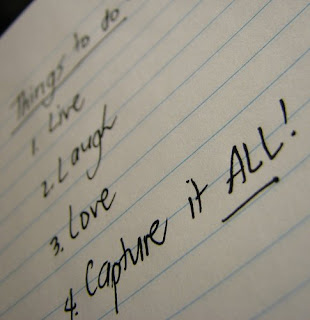 Things to do
1. Live
2. Laugh
3. Love
4. Capture it ALL!